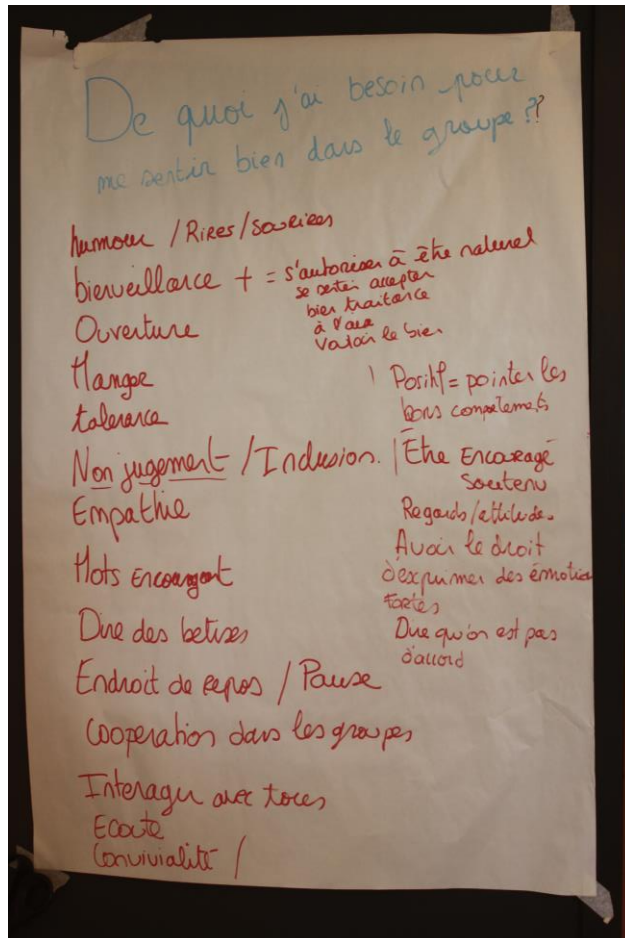 De quoi j'ai besoin pour
me sentir bien dans le groupe ??
humour / Rires / sourires
bienveillance + = s'autoriser à être naturel
se sentir accepter
bien traitance
à l'aise
Vouloir le bien
Ouverture
Manger
tolerance
Non jugement / Inclusion.
Empathie
Mots encourageant
Dire des betises
Endroit de repos / Pause
Cooperation dans les groupes
Interagir avec tous
Ecoute
Convivialité /
Positif = pointer les
bons comportements
Être Encouragé
Soutenu
Regards / attitudes
Avoir le droit
d'exprimer des émotions
fortes
Dire qu'on est pas
d'accord